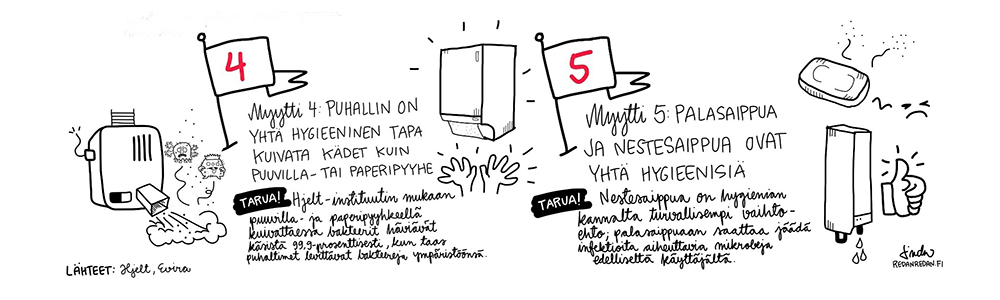 4
Myytti 4: PUHALLIN ON
YHTÄ HYGIEENINEN TAPA
KUIVATA KÄDET KUIN
PUUVILLA- TAI PAPERIPYYHE
TARUA! Hjelt-instituutin mukaan
puuvilla- ja paperipyyhkeellä
kuivattaessa bakteerit häviävät
käsistä 99,9-prosenttisesti, kun taas
puhaltimet levittävät bakteereja ympäristöönsä.
5
Myytti 5: PALASAIPPUA
JA NESTESAIPPUA OVAT
YHTÄ HYGIEENISIÄ
TARUA! Nestesaippua on hygienian
kannalta turvallisempi vaihto-
ehto; palasaippuaan saattaa jäädä
infektioita aiheuttavia mikrobeja
edelliseltä käyttäjältä.
LÄHTEET: Hjelt, Evira
Linda
REDANREDAN.FI